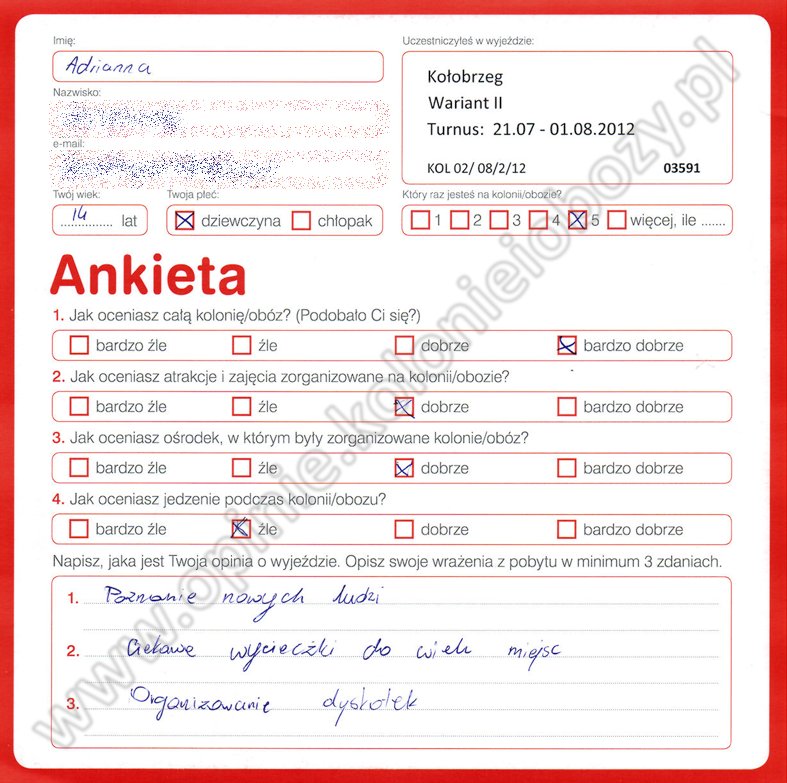 Imię:
Adrianna
Uczestniczyłeś w wyjeździe:
Kołobrzeg
Wariant II
Turnus: 21.07 - 01.08.2012
KOL 02/ 08/2/12 03591
Nazwisko:
e-mail:
Twój wiek:
14 lat
Twoja płeć:
dziewczyna chłopak
Który raz jesteś na kolonii/obozie?
1 2 3 4 5 więcej, ile .......
Ankieta
1. Jak oceniasz całą kolonię/obóz? (Podobało Ci się?)
bardzo źle źle dobrze bardzo dobrze
2. Jak oceniasz atrakcje i zajęcia zorganizowane na kolonii/obozie?
bardzo źle źle dobrze bardzo dobrze
3. Jak oceniasz ośrodek, w którym były zorganizowane kolonie/obóz?
bardzo źle źle dobrze bardzo dobrze
4. Jak oceniasz jedzenie podczas kolonii/obozu?
bardzo źle źle dobrze bardzo dobrze
Napisz, jaka jest Twoja opinia o wyjeździe. Opisz swoje wrażenia z pobytu w minimum 3 zdaniach.
1. Poznanie nowych ludzi
2. Ciekawe wycieczki do wielu miejsc
3. Organizowanie dyskotek
www.opinie.kolonieiobozy.pl